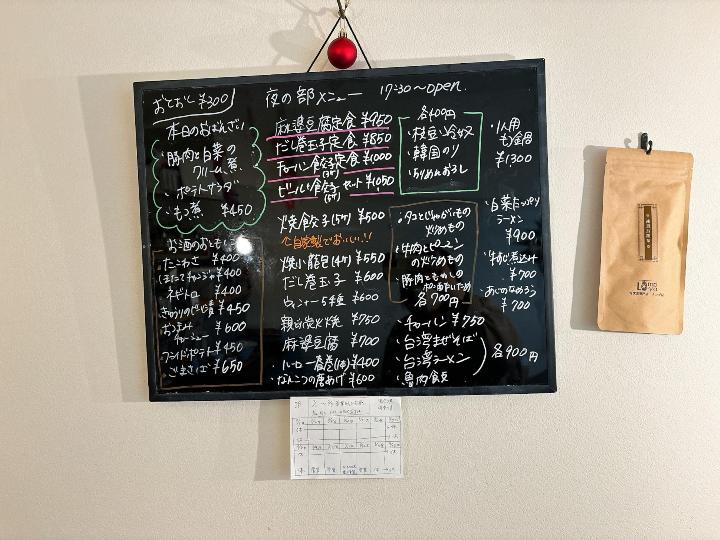 おとおし ¥300
夜の部メニュー 17:30〜open.
本日のおばんざい
・豚肉と白菜の
クリーム煮
・ポテトサラダ
・もつ煮 ¥450
お酒のおとも
・たこわさ ¥400
・ほたてチャンジャ ¥400
・ネギトロ ¥400
¥450
・おつまみ
チャーシュー ¥600
・フライドポテト ¥450
・ごまさば ¥650
麻婆豆腐定食 ¥950
だし巻玉子定食 ¥850
チャーハン餃子定食 ¥1000
(3ケ)
ビール餃子セット ¥1050
(5ケ)
焼餃子(5ケ) ¥500
自家製でおいしい!!
焼小籠包(4ケ) ¥550
だし巻玉子 ¥600
ウィンナー5種 ¥600
親鶏炭火焼 ¥750
麻婆豆腐 ¥700
・ルーロー春巻(1本) ¥400
・なんこつの唐あげ ¥600
各400円
・枝豆・冷奴
・韓国のり
・ちりめんおろし
・タコとじゃがいもの
炒めもの
・牛肉とピーマン
の炒めもの
・豚肉と
各700円
・チャーハン ¥750
・台湾まぜそば
・台湾ラーメン
・魯肉飯
各900円
・1人用
もつ鍋
¥1300
・白菜たっぷり
ラーメン
¥900
・牛すじ煮込み
¥700
・あじのなめろう
¥700